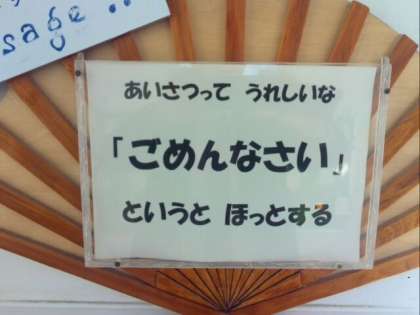 sage..
あいさつって うれしいな
「ごめんなさい」
というと ほっとする